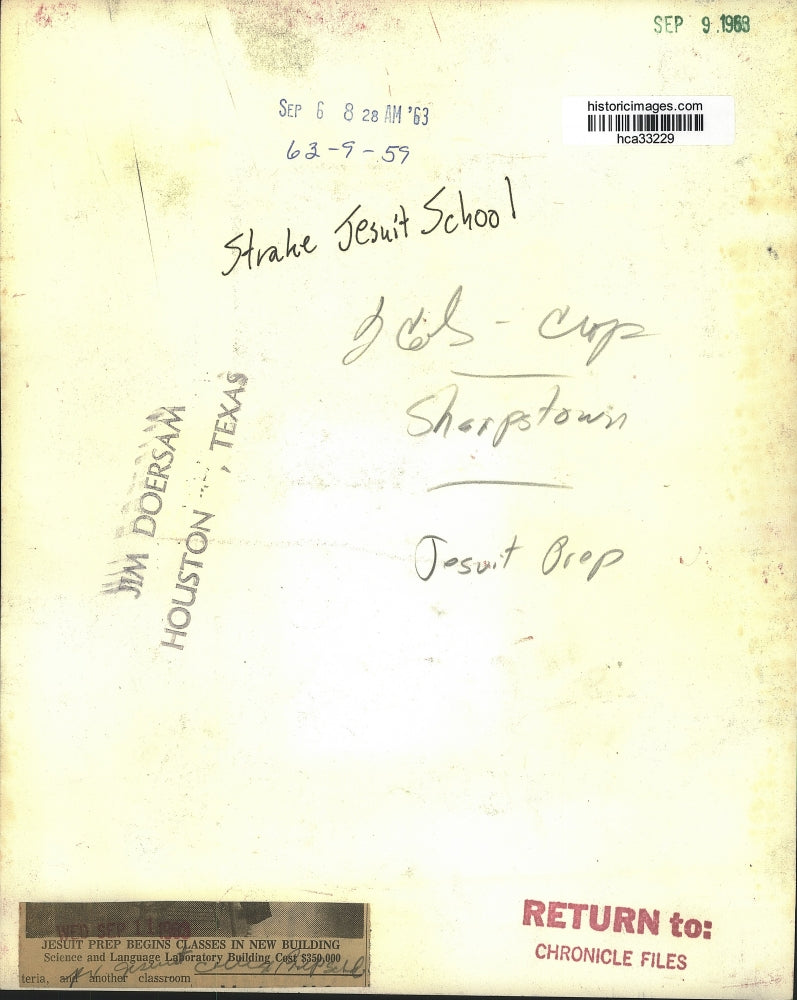 SEP 9 1963
SEP 6 8 28 AM '63
historicimages.com
hca33229
63-9-59
Strake Jesuit School
Crop
Sharpstown
JIM DOERSAM
HOUSTON, TEXAS
Jesuit Prep
WED SEP 11 1963
JESUIT PREP BEGINS CLASSES IN NEW BUILDING
Science and Language Laboratory Building Cost $350,000
teria, and another classroom
RETURN to:
CHRONICLE FILES